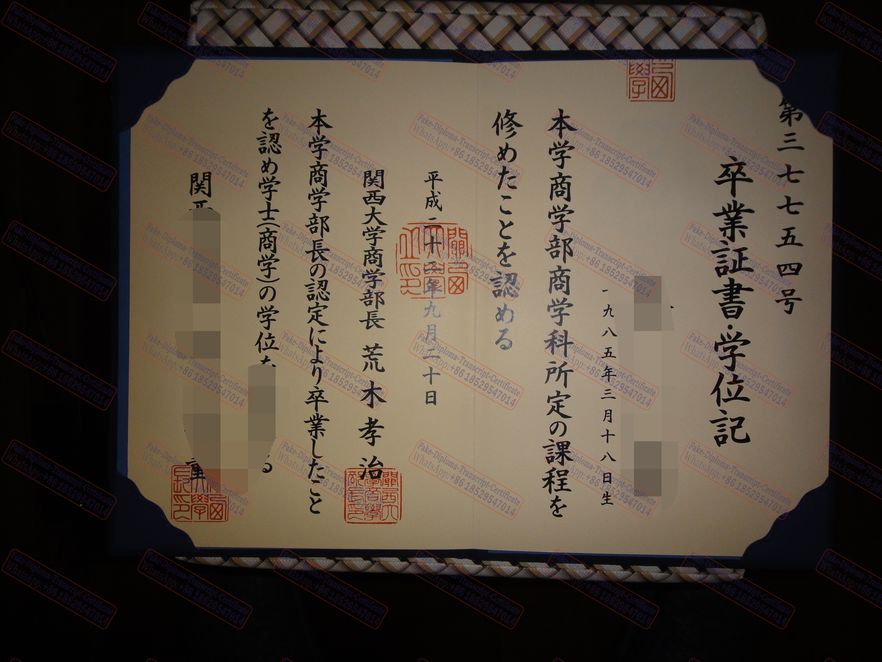 第三七七五四号
卒業証書・学位記
一九八五年三月十八日生
本学商学部商学科所定の課程を
修めたことを認める
平成二十 年九月二十日
関西大学商学部長 荒木孝治
本学商学部長の認定により卒業したこと
を認め学士(商学)の学位を
関
Fake-Diploma-Transcript-Certificate
WhatsApp:+86 18529547014